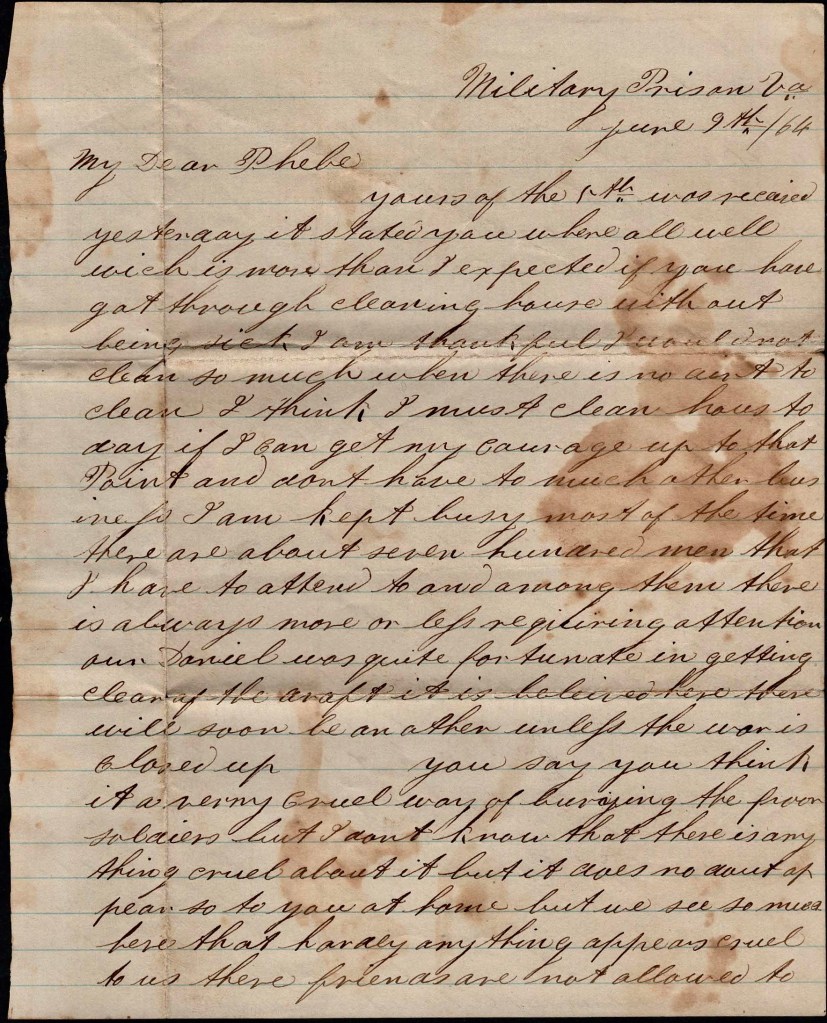 Military Prison Va
June 9th /64
My Dear Phebe
yours of the 5th was recieved
yesterday it stated you where all well
wich is more than I expected if you have
got through cleaning house without
being sick I am thankful I would not
clean so much when there is no dirt to
clean I think I must clean hous to
day if I can get my courage up to that
Point and dont have to much other bus
iness I am kept busy most of the time
there are about seven hundred men that
I have to attend to and among them there
is always more or less requiring attention
our Daniel was quite fortunate in getting
clear of the draft it is beleived here there
will soon be another unless the war is
closed up you say you think
it a verny cruel way of burying the poor
soldiers but I dont know that there is any
thing cruel about it but it does no dout ap
pear so to you at home but we see so much
here that hardly anything appears cruel
to us there friends are not allowed to